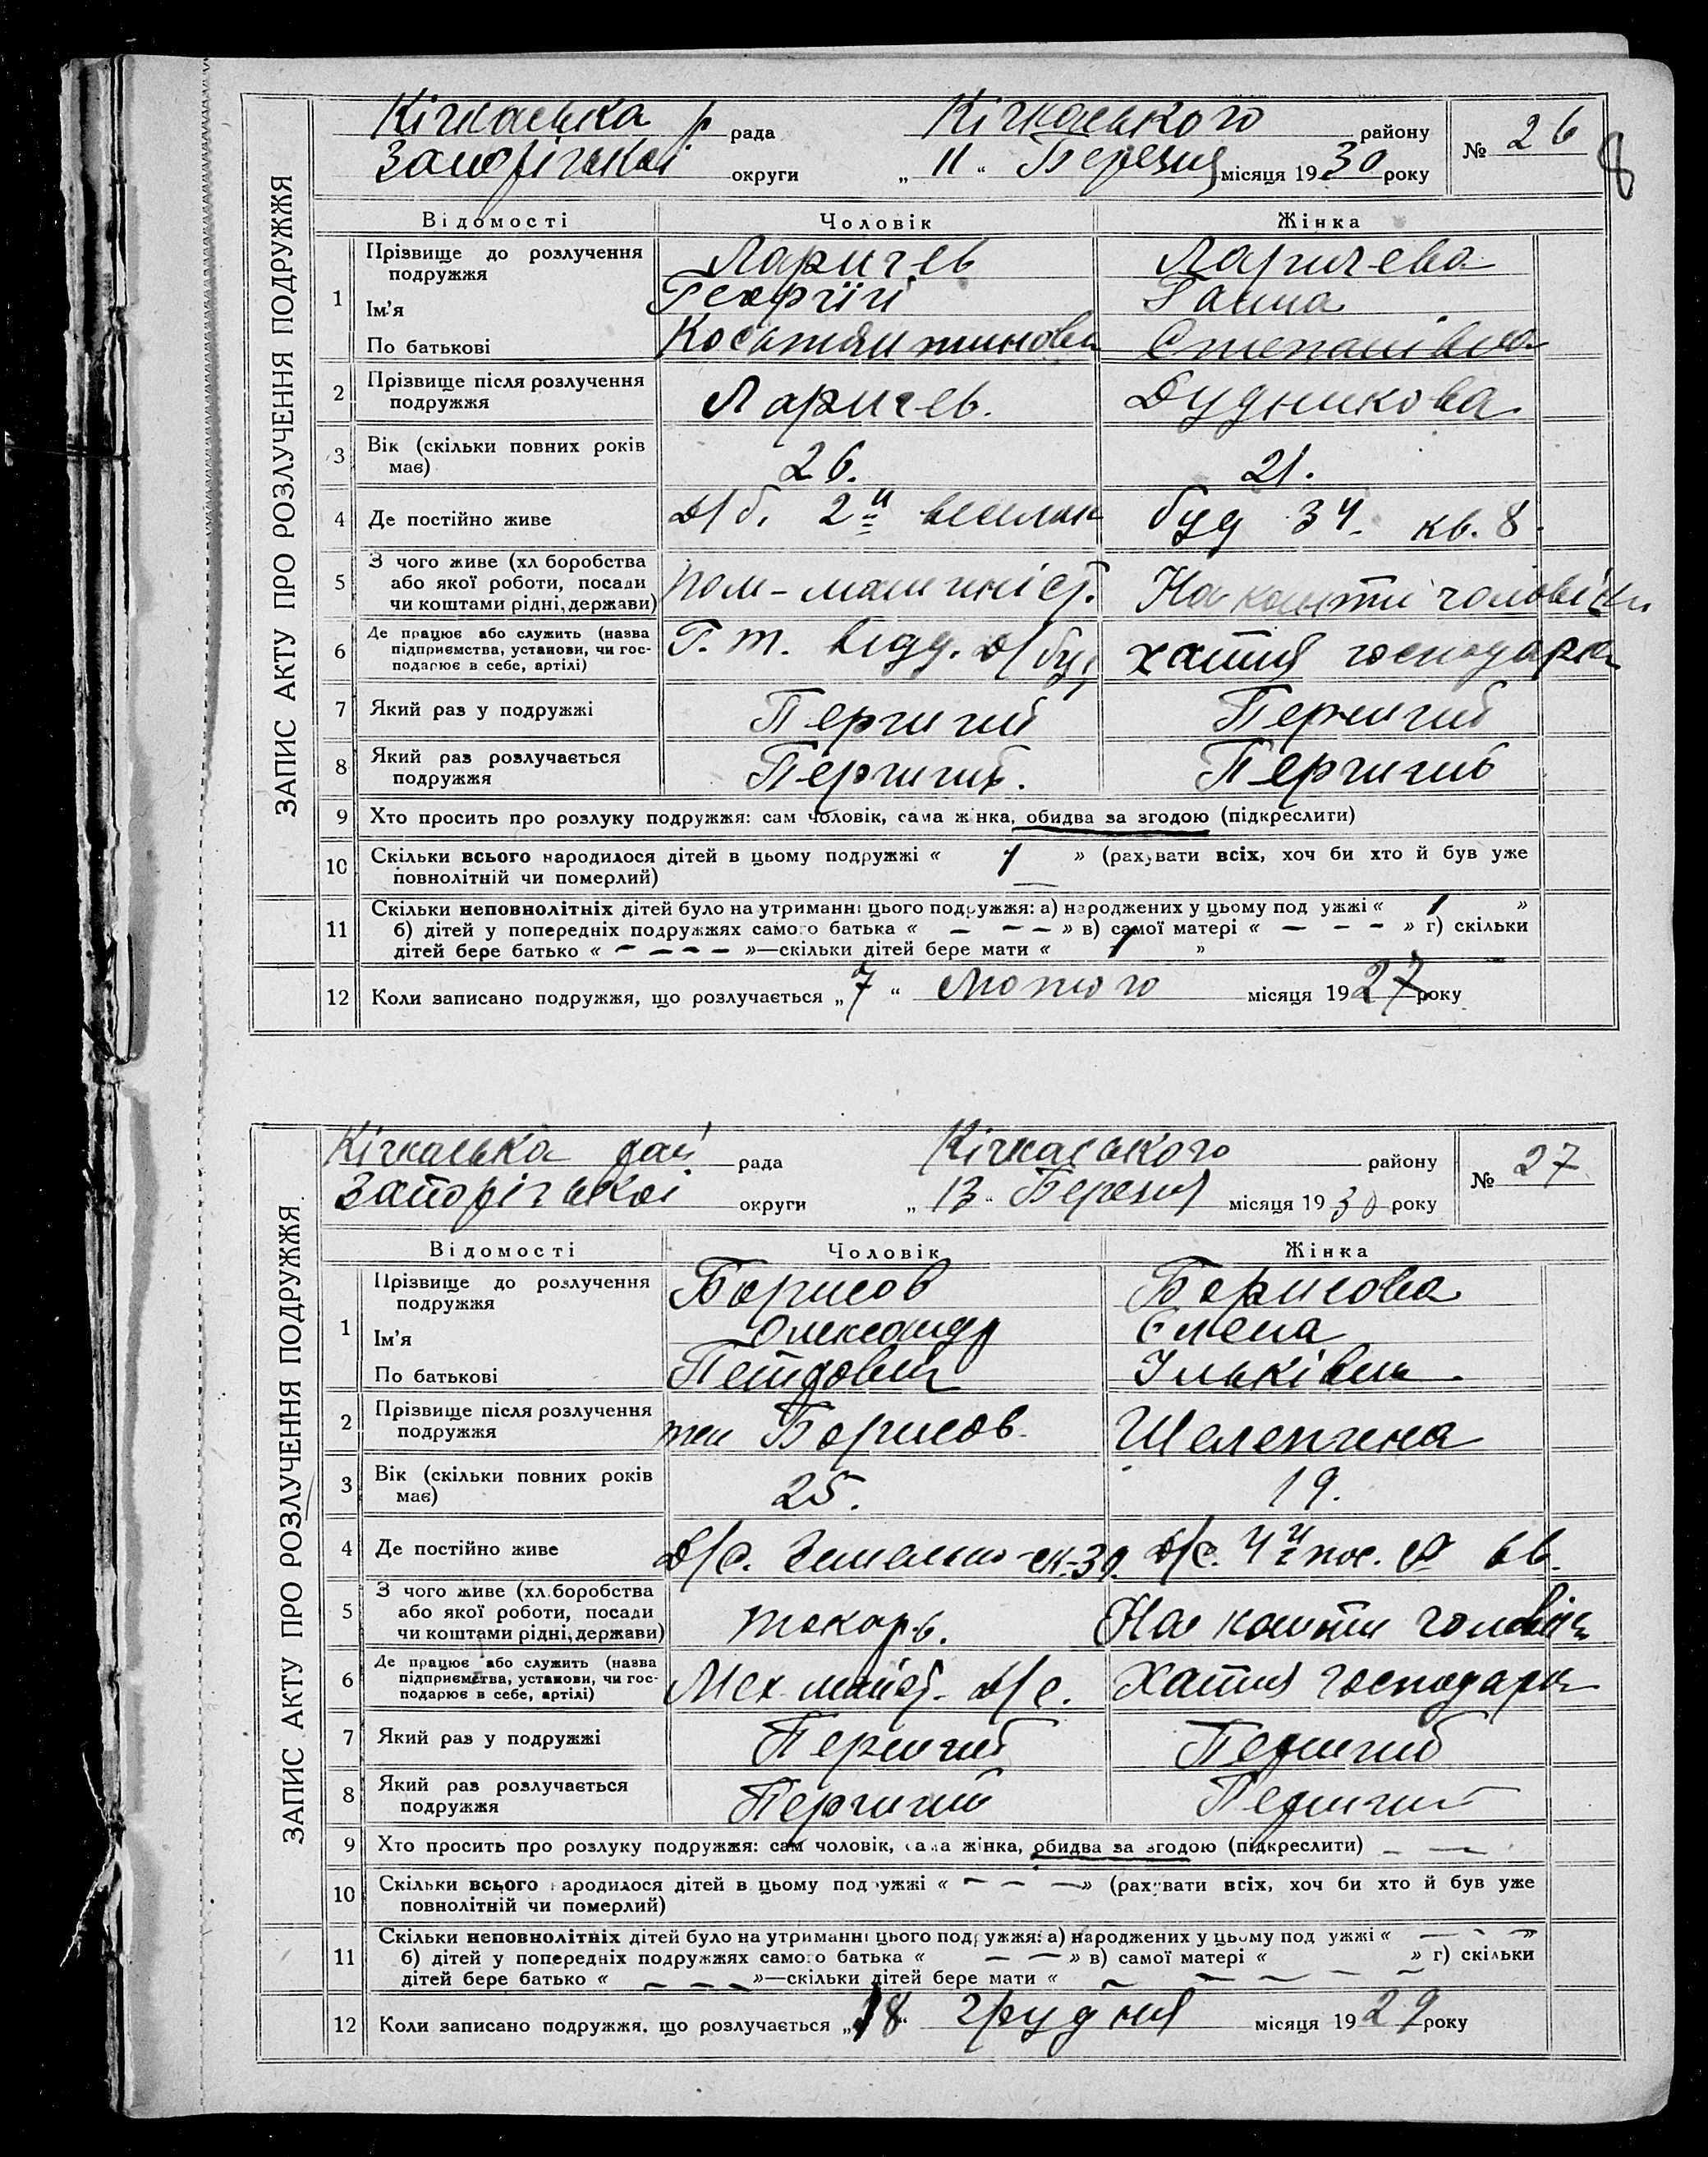 ЗАПИС АКТУ ПРО РОЗЛУЧЕННЯ ПОДРУЖЖЯ
Кічкаська р рада Кічкаського району № 26
8
Запорізької округи „ 11 “ Березня місяця 1930 року
Відомості Чоловік Жінка
1 Прізвище до розлучення подружжя Ларичев Ларичева
Ім'я Георгій Ганна
По батькові Костянтинови Степанівна
2 Прізвище після розлучення подружжя Ларичев. Дудникова
3 Вік (скільки повних років має) 26. 21.
4 Де постійно живе д/б. 2й буд 34. кв. 8.
5 З чого живе (хл боробства або якої роботи, посади чи коштами рідні, держави) пом-машиніст. На кошти чоловіка
6 Де працює або служить (назва підприємства, установи, чи господарює в себе, артілі) Г. т. відд. д/буд хатня господарка
7 Який раз у подружжі Перший Перший
8 Який раз розлучається подружжя Перший. Перший
9 Хто просить про розлуку подружжя: сам чоловік, сама жінка, обидва за згодою (підкреслити)
10 Скільки всього народилося дітей в цьому подружжі « 1 » (рахувати всіх, хоч би хто й був уже
повнолітній чи померлий)
11 Скільки неповнолітніх дітей було на утриманні цього подружжя: а) народжених у цьому подружжі « 1 »
б) дітей у попередніх подружжях самого батька « – – – » в) самої матері « – – – » г) скільки
дітей бере батько « – – – – » — скільки дітей бере мати « 1 »
12 Коли записано подружжя, що розлучається „ 7 “ Лютого місяця 1927 року
ЗАПИС АКТУ ПРО РОЗЛУЧЕННЯ ПОДРУЖЖЯ
Кічкаська рай рада Кічкаського району № 27
Запорізької округи „ 13 “ Березня місяця 1930 року
Відомості Чоловік Жінка
1 Прізвище до розлучення подружжя Борисов Борисова
Ім'я Олександр Елена
По батькові Петрович Ільківна.
2 Прізвище після розлучення подружжя Борисов Шелепчена
3 Вік (скільки повних років має) 25. 19.
4 Де постійно живе д/с. д/с. 4й пос.
5 З чого живе (хл.боробства або якої роботи, посади чи коштами рідні, держави) токарь. На кошти чоловіка
6 Де працює або служить (назва підприємства, установи, чи господарює в себе, артілі) Мех. майст. д/с. Хатня господарка
7 Який раз у подружжі Перший Перший
8 Який раз розлучається подружжя Перший Перший
9 Хто просить про розлуку подружжя: сам чоловік, сама жінка, обидва за згодою (підкреслити) – –
10 Скільки всього народилося дітей в цьому подружжі « – – – » (рахувати всіх, хоч би хто й був уже
повнолітній чи померлий)
11 Скільки неповнолітніх дітей було на утриманні цього подружжя: а) народжених у цьому подружжі « – – – »
б) дітей у попередніх подружжях самого батька « – – » в) самої матері « » г) скільки
дітей бере батько « – – – » — скільки дітей бере мати « – – – – – –
12 Коли записано подружжя, що розлучається „ 18 “ грудня місяця 1929 року